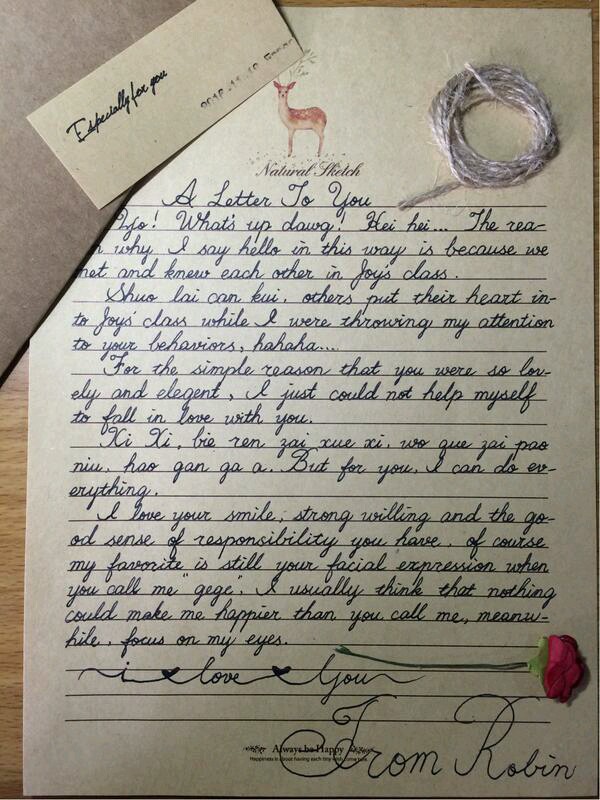 Especially for you
2016.11.19
Natural Sketch
A Letter To You
Yo! What's up dawg! Hei hei... The rea-
why I say hello in this way is because we
met and knew each other in Joys' class.
Shuo lai can kui, others put their heart in-
to Joys' class while I were throwing my attention
to your behaviors, hahaha...
For the simple reason that you were so lov-
ely and elegent, I just could not help myself
to fall in love with you.
Xi Xi, bie ren zai xue xi, wo que zai pao
niu, hao gan ga a. But for you, I can do ev-
erything.
I love your smile, strong willing and the go-
od sense of responsibility you have, of course
my favorite is still your facial expression when
you call me "gege". I usually think that nothing
could make me happier than you call me, meanw-
hile, focus on my eyes.
i love you
From Robin
Always be Happy
Happiness is about having each tiny wish come true.